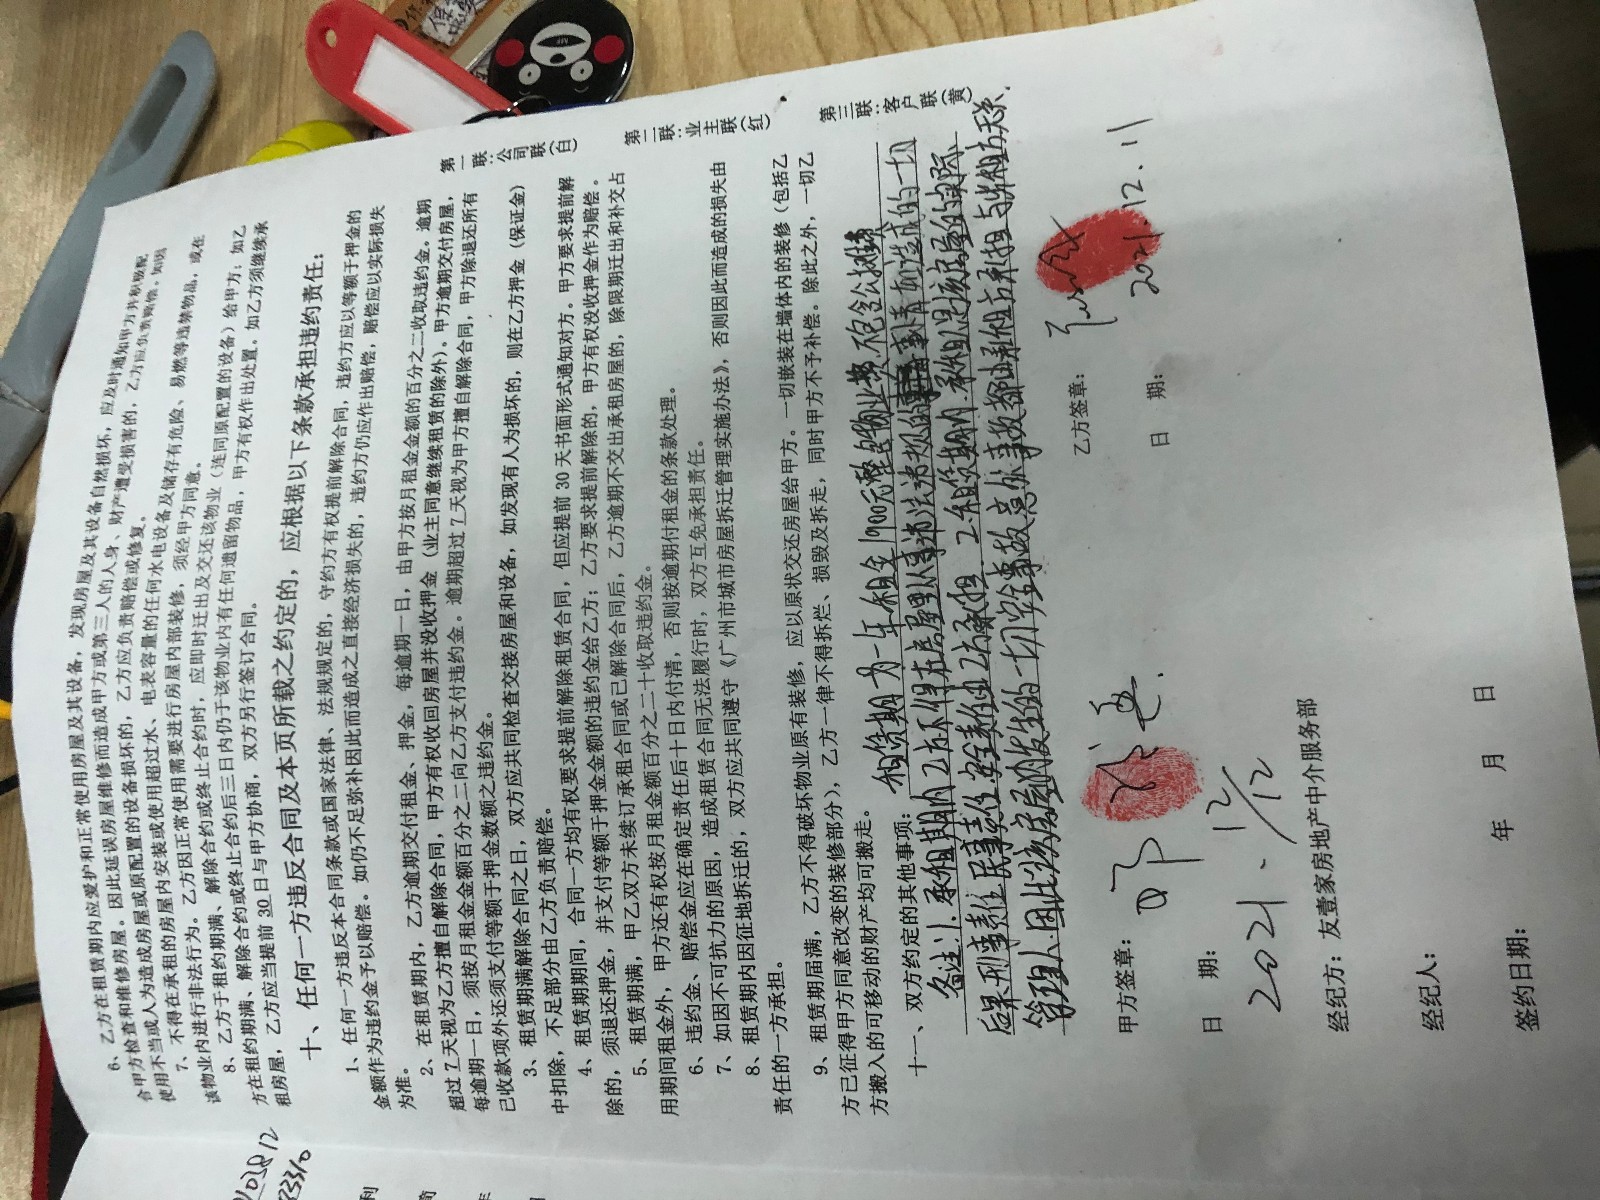 6、乙方在租赁期内应爱护和正常使用房屋及其设备，发现房屋及其设备自然损坏，应及时通知甲方并积极配
合甲方检查和维修房屋。因此延误房屋维修而造成甲方或第三人的人身、财产遭受损害的，乙方应负责赔偿。如因
使用不当或人为造成房屋或原配置的设备损坏的，乙方应负责赔偿或修复。
7、不得在承租的房屋内安装或使用超过水、电表容量的任何水电设备及储存有危险、易燃等违禁物品，或在
该物业内进行非法行为。乙方因正常使用需要进行房屋内部装修，须经甲方同意。
8、乙方于租约期满、解除合约或终止合约时，应即时迁出及交还该物业（连同原配置的设备）给甲方；如乙
方在租约期满、解除合约或终止合约后三日内仍于该物业内有任何遗留物品，甲方有权作出处置。如乙方须继续承
租房屋，乙方应当提前30日与甲方协商，双方另行签订合同。
十、任何一方违反合同及本页所载之约定的，应根据以下条款承担违约责任：
1、任何一方违反本合同条款或国家法律、法规规定的，守约方有权提前解除合同，违约方应以等额于押金的
金额作为违约金予以赔偿。如仍不足弥补因此而造成之直接经济损失的，违约方仍应作出赔偿，赔偿应以实际损失
为准。
2、在租赁期内，乙方逾期交付租金、押金，每逾期一日，由甲方按月租金金额的百分之二收取违约金。逾期
超过7天视为乙方擅自解除合同，甲方有权收回房屋并没收押金（业主同意继续租赁的除外）。甲方逾期交付房屋，
每逾期一日，须按月租金金额百分之二向乙方支付违约金。逾期超过7天视为甲方擅自解除合同，甲方除退还所有
已收款项外还须支付等额于押金数额之违约金。
3、租赁期满解除合同之日，双方应共同检查交接房屋和设备，如发现有人为损坏的，则在乙方押金（保证金）
中扣除，不足部分由乙方负责赔偿。
4、租赁期期间，合同一方均有权要求提前解除租赁合同，但应提前30天书面形式通知对方。甲方要求提前解
除的，须退还押金，并支付等额于押金金额的违约金给乙方；乙方要求提前解除的，甲方有权没收押金作为赔偿。
5、租赁期满，甲乙双方未续订承租合同或已解除合同后，乙方逾期不交出承租房屋的，除限期迁出和补交占
用期间租金外，甲方还有权按月租金额百分之二十收取违约金。
6、违约金、赔偿金应在确定责任后十日内付清，否则按逾期付租金的条款处理。
7、如因不可抗力的原因，造成租赁合同无法履行时，双方互免承担责任。
8、租赁期内因征地拆迁的，双方应共同遵守《广州市城市房屋拆迁管理实施办法》，否则因此而造成的损失由
责任的一方承担。
9、租赁期届满，乙方不得破坏物业原有装修，应以原状交还房屋给甲方。一切嵌装在墙体内的装修（包括乙
方已征得甲方同意改变的装修部分），乙方一律不得拆烂、损毁及拆走，同时甲方不予补偿。除此之外，一切乙
方搬入的可移动的财产均可搬走。
十一、双方约定的其他事项：租赁期为一年租金1900元整含物业费.不包含公摊
备注:1.承租期内乙方不得在房屋里从事非法违规的事情而造成的一切
后果.刑事责任.民事责任.安全责任.由乙方承担 2.在租赁期内.承租人是该房屋的实际
管理人.因此该房屋内发生的一切安全事故.意外事故都由承租方承担.与出租方无关.
甲方签章：
日 期：
2021.12/12
乙方签章：
日 期：
2021.12.11
经纪方：友壹家房地产中介服务部
经纪人：
签约日期： 年 月 日
第一联：公司联（白）
第二联：业主联（红）
第三联：客户联（黄）